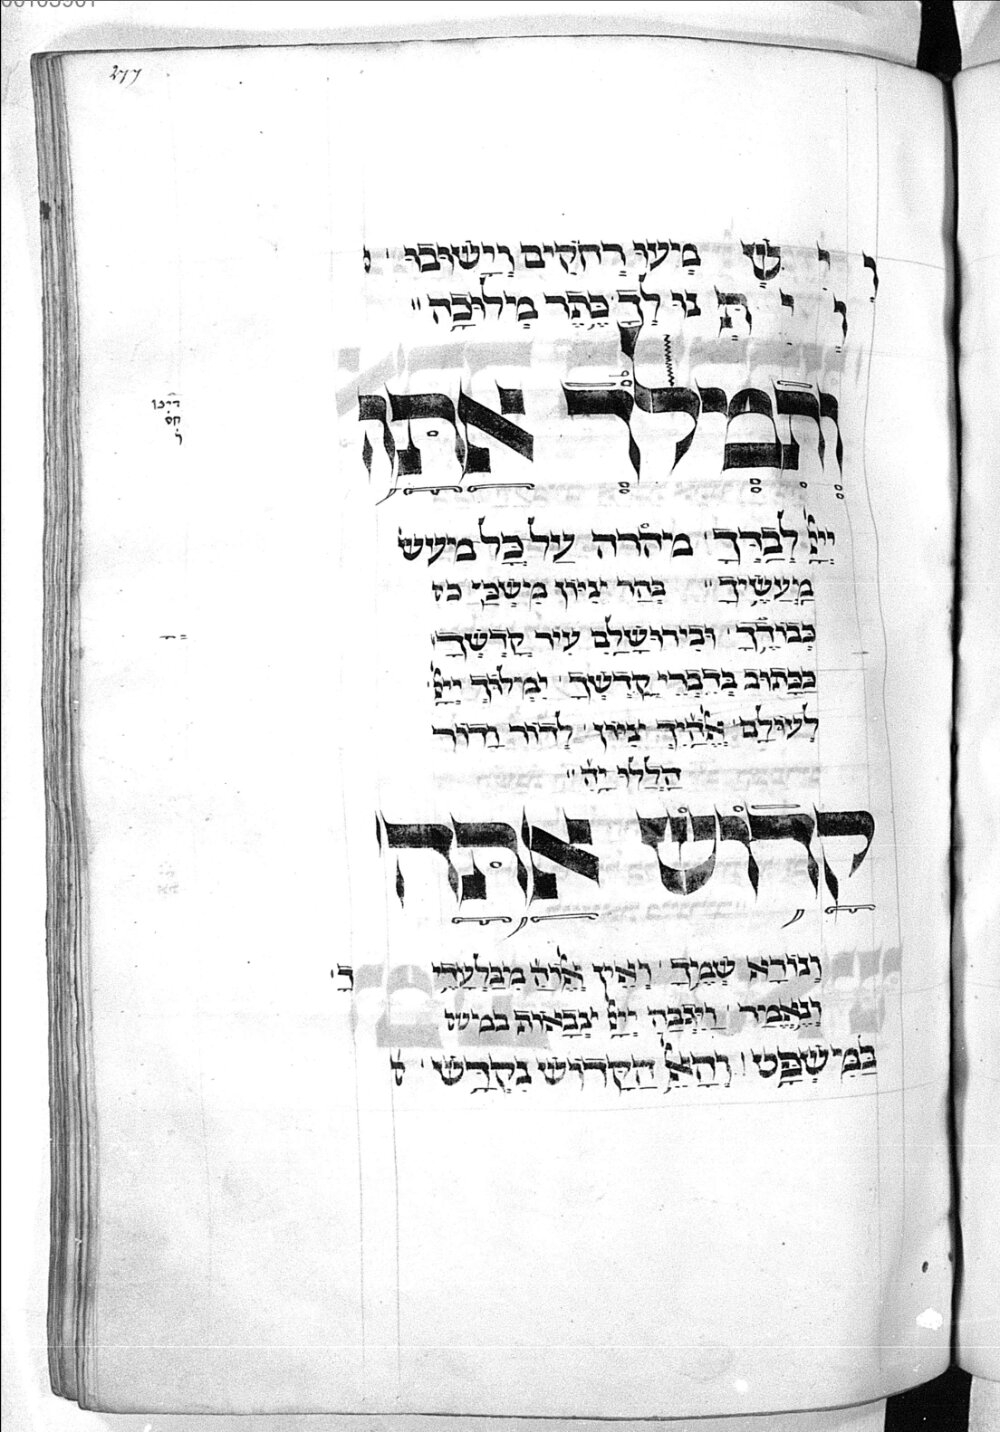 277
וְיִשְׁמְעוּ רְחֹקִים וְיָשׁוּבוּ
וְיִתְּנוּ לְךָ כֶּתֶר מְלוּכָה׃
וְתִמְלֹךְ אַתָּה
יְיָ לְבַדְּךָ מהרה עַל כָּל מעש
מַעֲשֶׂיךָ׃ בְּהַר צִיּוֹן מִשְׁכַּן כ
כְּבוֹדֶךָ וּבִירוּשָׁלַםִ עִיר קָדְשֶׁךָ
כַּכָּתוּב בְּדִבְרֵי קָדְשֶׁךָ יִמְלוֹךְ יְיָ
לְעוֹלָם אֱלֹהַיִךְ צִיּוֹן לְדוֹר וָדוֹר
הַלְלוּ יָהּ׃
קָדוֹשׁ אַתָּה
וְנוֹרָא שְׁמֶךָ וְאֵין אֱלוֹהַּ מִבַּלְעָדֶיךָ
וְנֶאֱמַר וַיִּגְבַּהּ יְיָ צְבָאוֹת במיש
בַּמִּשְׁפָּט וְהָאֵל הַקָּדוֹשׁ נִקְדָּשׁ